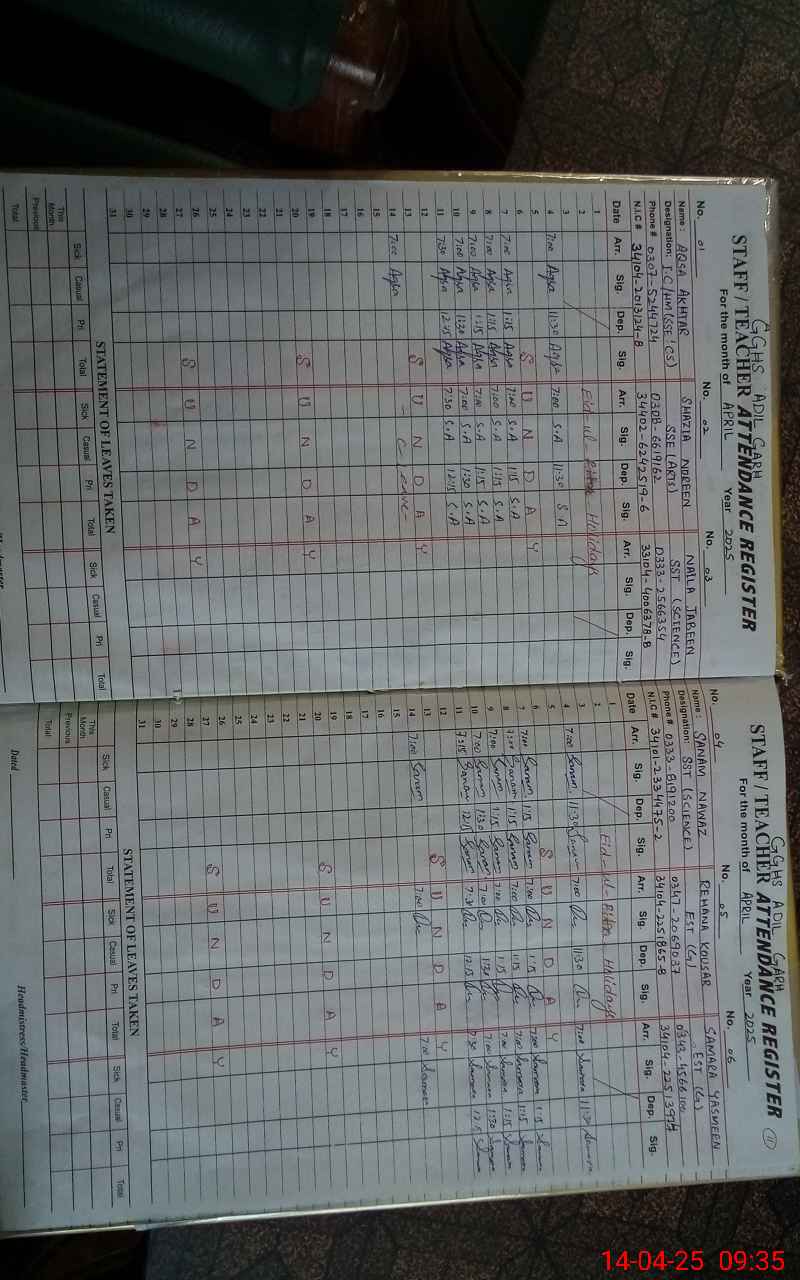 GGHS ADIL GARH
STAFF / TEACHER ATTENDANCE REGISTER
For the month of APRIL Year 2025
No. 01 No. 02 No. 03
Name: AQSA AKHTAR SHAZIA NOREEN NAILA JAREEN
Designation: I.C/HM(SSE'CS) SSE (ARTS) SST (SCIENCE)
Phone # 0307-5244724 0308-6619162 0333-2566354
N.I.C # 34104-2013124-8 34402-6242519-6 33104-4006378-8
Date Arr. Sig. Dep. Sig. Arr. Sig. Dep. Sig. Arr. Sig. Dep. Sig.
1
2 Eid-ul-Fitar Holidays
3
4 7:00 Aqsa 11:30 Aqsa 7:00 S.A 11:30 S.A
5
6 S U N D A Y
7 7:00 Aqsa 1:15 Aqsa 7:00 S.A 1:15 S.A
8 7:00 Aqsa 1:15 Aqsa 7:00 S.A 1:15 S.A
9 7:00 Aqsa 1:15 Aqsa 7:00 S.A 1:15 S.A
10 7:00 Aqsa 11:30 Aqsa 7:00 S.A 1:30 S.A
11 7:30 Aqsa 12:15 Aqsa 7:30 S.A 12:15 S.A
12
13 S U N D A Y
14 7:00 Aqsa - C leave -
15
16
17
18
19
20 S U N D A Y
21
22
23
24
25
26
27 S U N D A Y
28
29
30
31
STATEMENT OF LEAVES TAKEN
Sick Casual Pri Total Sick Casual Pri Total Sick Casual Pri Total
This Month
Previous
Total
GGHS ADIL GARH 11
STAFF / TEACHER ATTENDANCE REGISTER
For the month of APRIL Year 2025
No. 04 No. 05 No. 06
Name: SANAM NAWAZ REHANA KOUSAR SAMARA YASMEEN
Designation: SST (SCIENCE) EST (G) EST (G)
Phone # 0333-8191200 0347-2069037 0343-4566100
N.I.C # 34101-2334475-2 34104-2251865-8 34104-2251397
Date Arr. Sig. Dep. Sig. Arr. Sig. Dep. Sig. Arr. Sig. Dep. Sig.
1
2 Eid-ul-Fitar Holidays
3
4 7:00 Sanam 11:30 Sanam 7:00 11:30 7:00 Samara 11:30 Samara
5
6 S U N D A Y
7 7:00 Sanam 1:15 Sanam 7:00 1:15 7:00 Samara 1:15 Samara
8 7:00 Sanam 1:15 Sanam 7:00 1:15 7:00 Samara 1:15 Samara
9 7:00 Sanam 1:15 Sanam 7:00 1:15 7:00 Samara 1:15 Samara
10 7:00 Sanam 1:30 Sanam 7:00 1:30 7:00 Samara 1:30 Samara
11 7:15 Sanam 12:15 Sanam 7:30 12:15 7:30 Samara 12:15 Samara
12
13 S U N D A Y
14 7:00 Sanam 7:00 7:00 Samara
15
16
17
18
19
20 S U N D A Y
21
22
23
24
25
26
27 S U N D A Y
28
29
30
31
STATEMENT OF LEAVES TAKEN
Sick Casual Pri Total Sick Casual Pri Total Sick Casual Pri Total
This Month
Previous
Total
Dated Headmistress/Headmaster
14-04-25 09:35